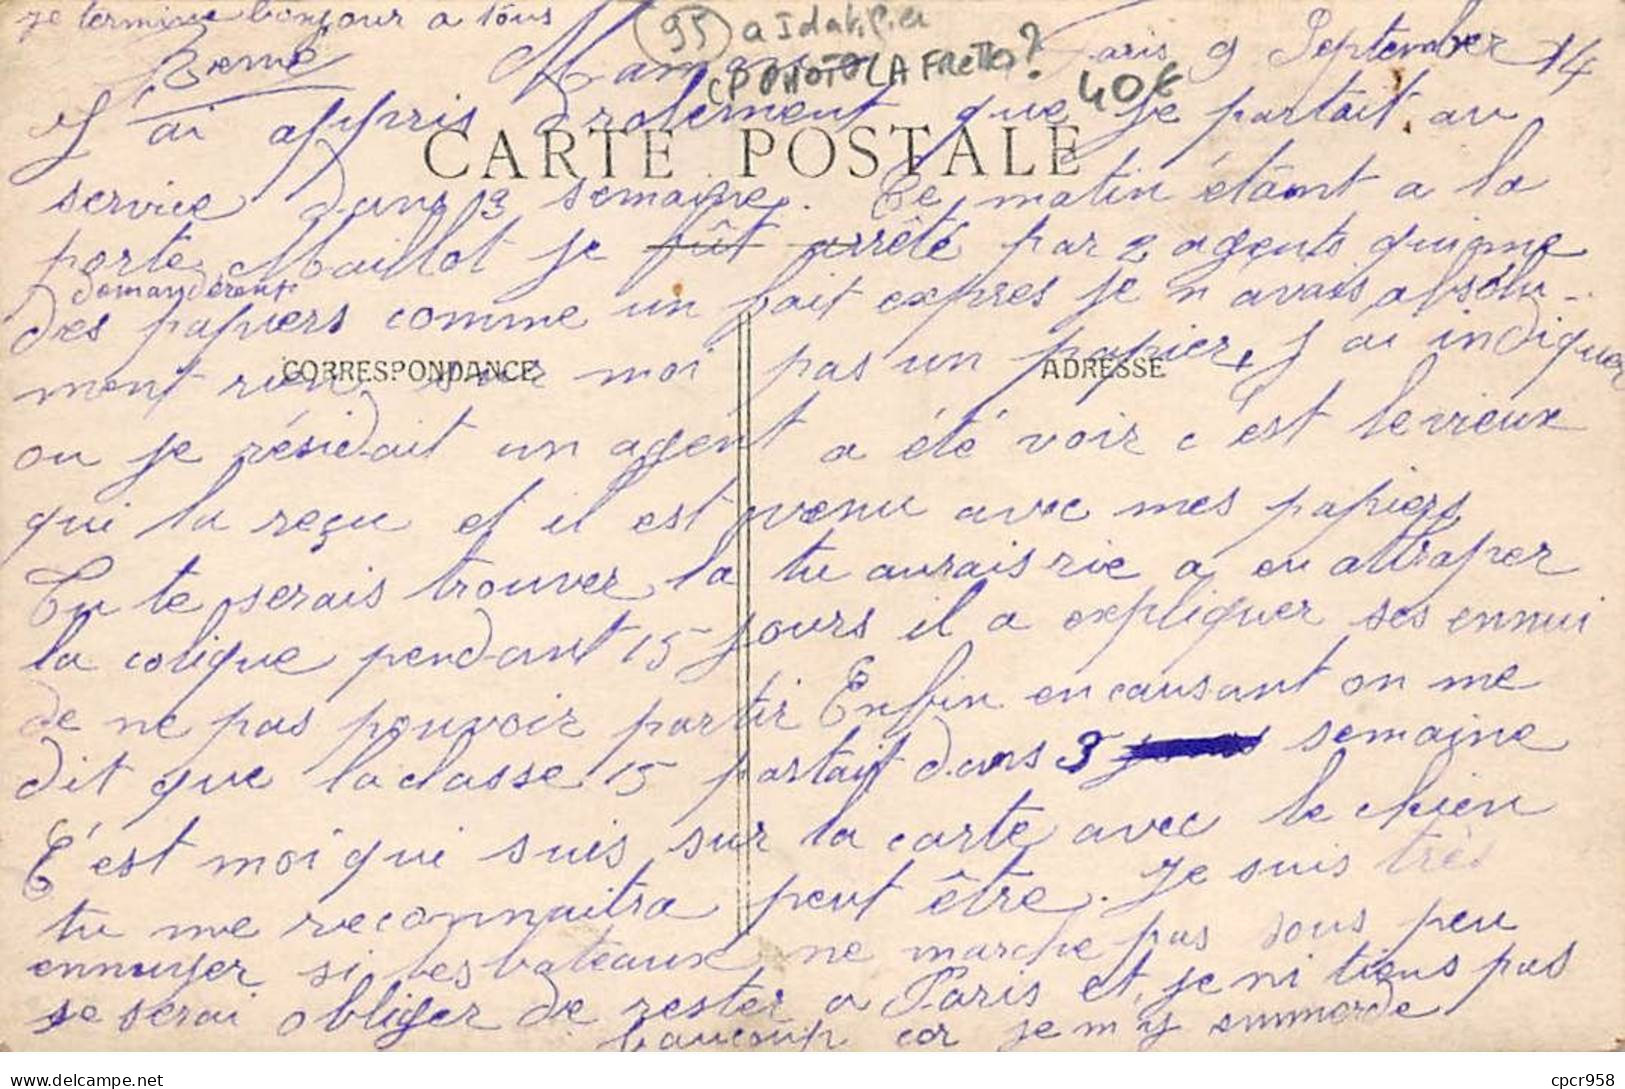 je termine bonjour a tous
René
95 a Idatifier
CP PHOTO LA FRETTE?
40€
Paris 9 September 14
Maman
J'ai appris drolement que je partait au
CARTE POSTALE
service dans 3 semaine. Ce matin étant a la
porte Maillot je fût arrêté par 2 agents qui me
demanderent
des papiers comme un fait expres je n'avais absolu-
ment rien sur moi pas un papier, J'ai indiquer
CORRESPONDANCE
ADRESSE
ou je résidait un agent a été voir c'est le vieux
qui la reçu et il est venu avec mes papiers
Tu te serais trouver la tu aurais rie a en attraper
la colique pendant 15 jours il a expliquer ses ennui
de ne pas pouvoir partir Enfin en causant on me
dit que la classe 15 partait dans 3 semaine
C'est moi qui suis sur la carte avec le chien
tu me reconnaitra peut être. Je suis très
ennuyer si les bateaux ne marche pas sous peu
je serai obliger de rester a Paris et je ni tiens pas
beaucoup car je m'y emmerde
cpcr958